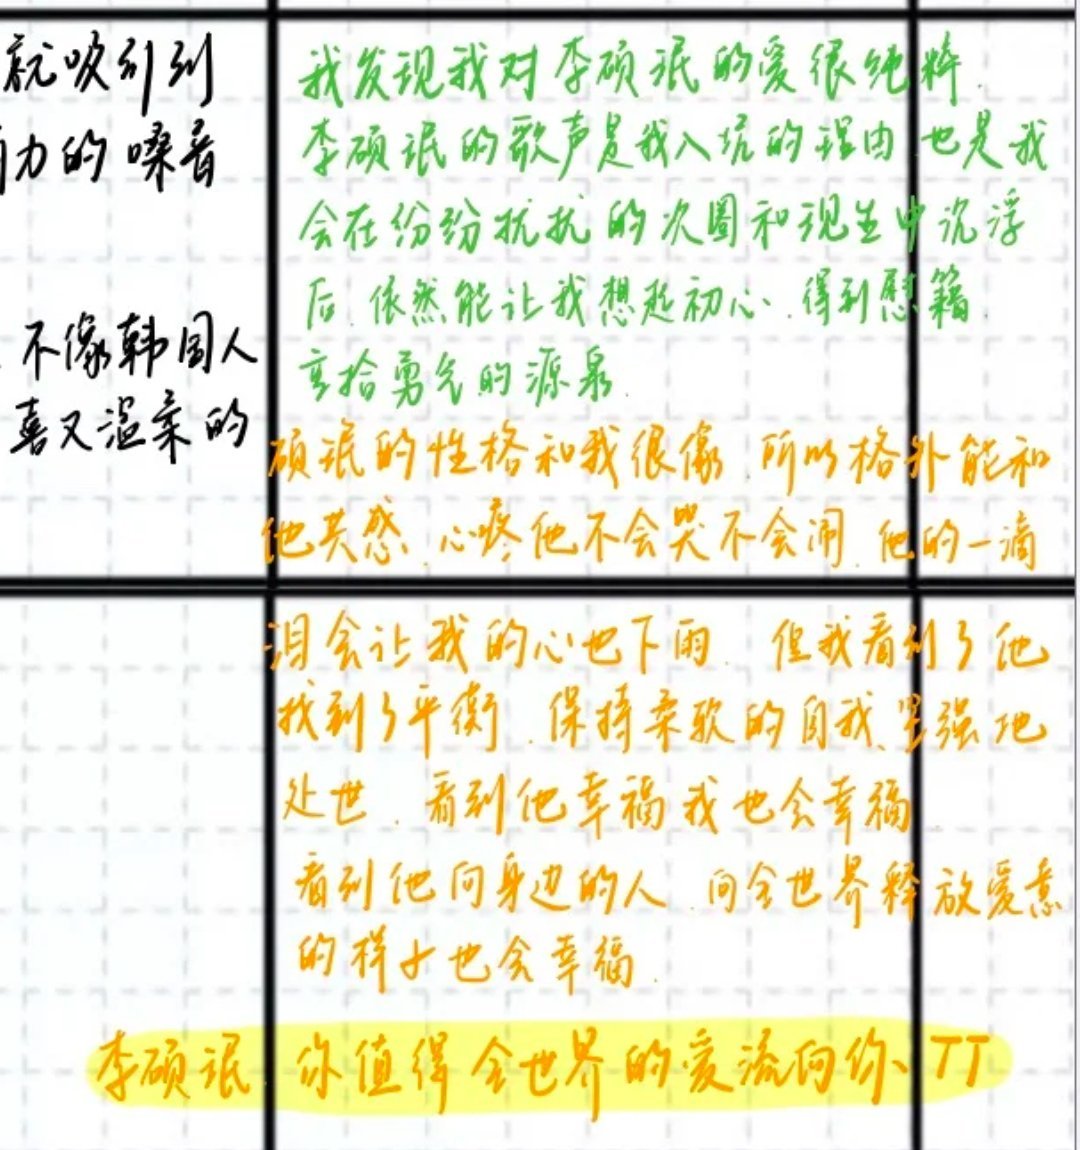 就吸引到
力的嗓音
不像韩国人
喜又温柔的
我发现我对李硕珉的爱很纯粹.
李硕珉的歌声是我入坑的理由 也是我
会在纷纷扰扰的次圈和现生中沉浮
后.依然能让我想起初心.得到慰籍.
拾勇气的源泉.
硕珉的性格和我很像.所以格外能和
他共感.心疼他不会哭不会闹.他的一滴
泪会让我的心也下雨.但我看到了他
找到了平衡.保持柔软的自我、坚强地
处世.看到他幸福我也会幸福.
看到他向身边的人.向全世界释放爱意
的样子也会幸福.
李硕珉.你值得全世界的爱流向你、TT